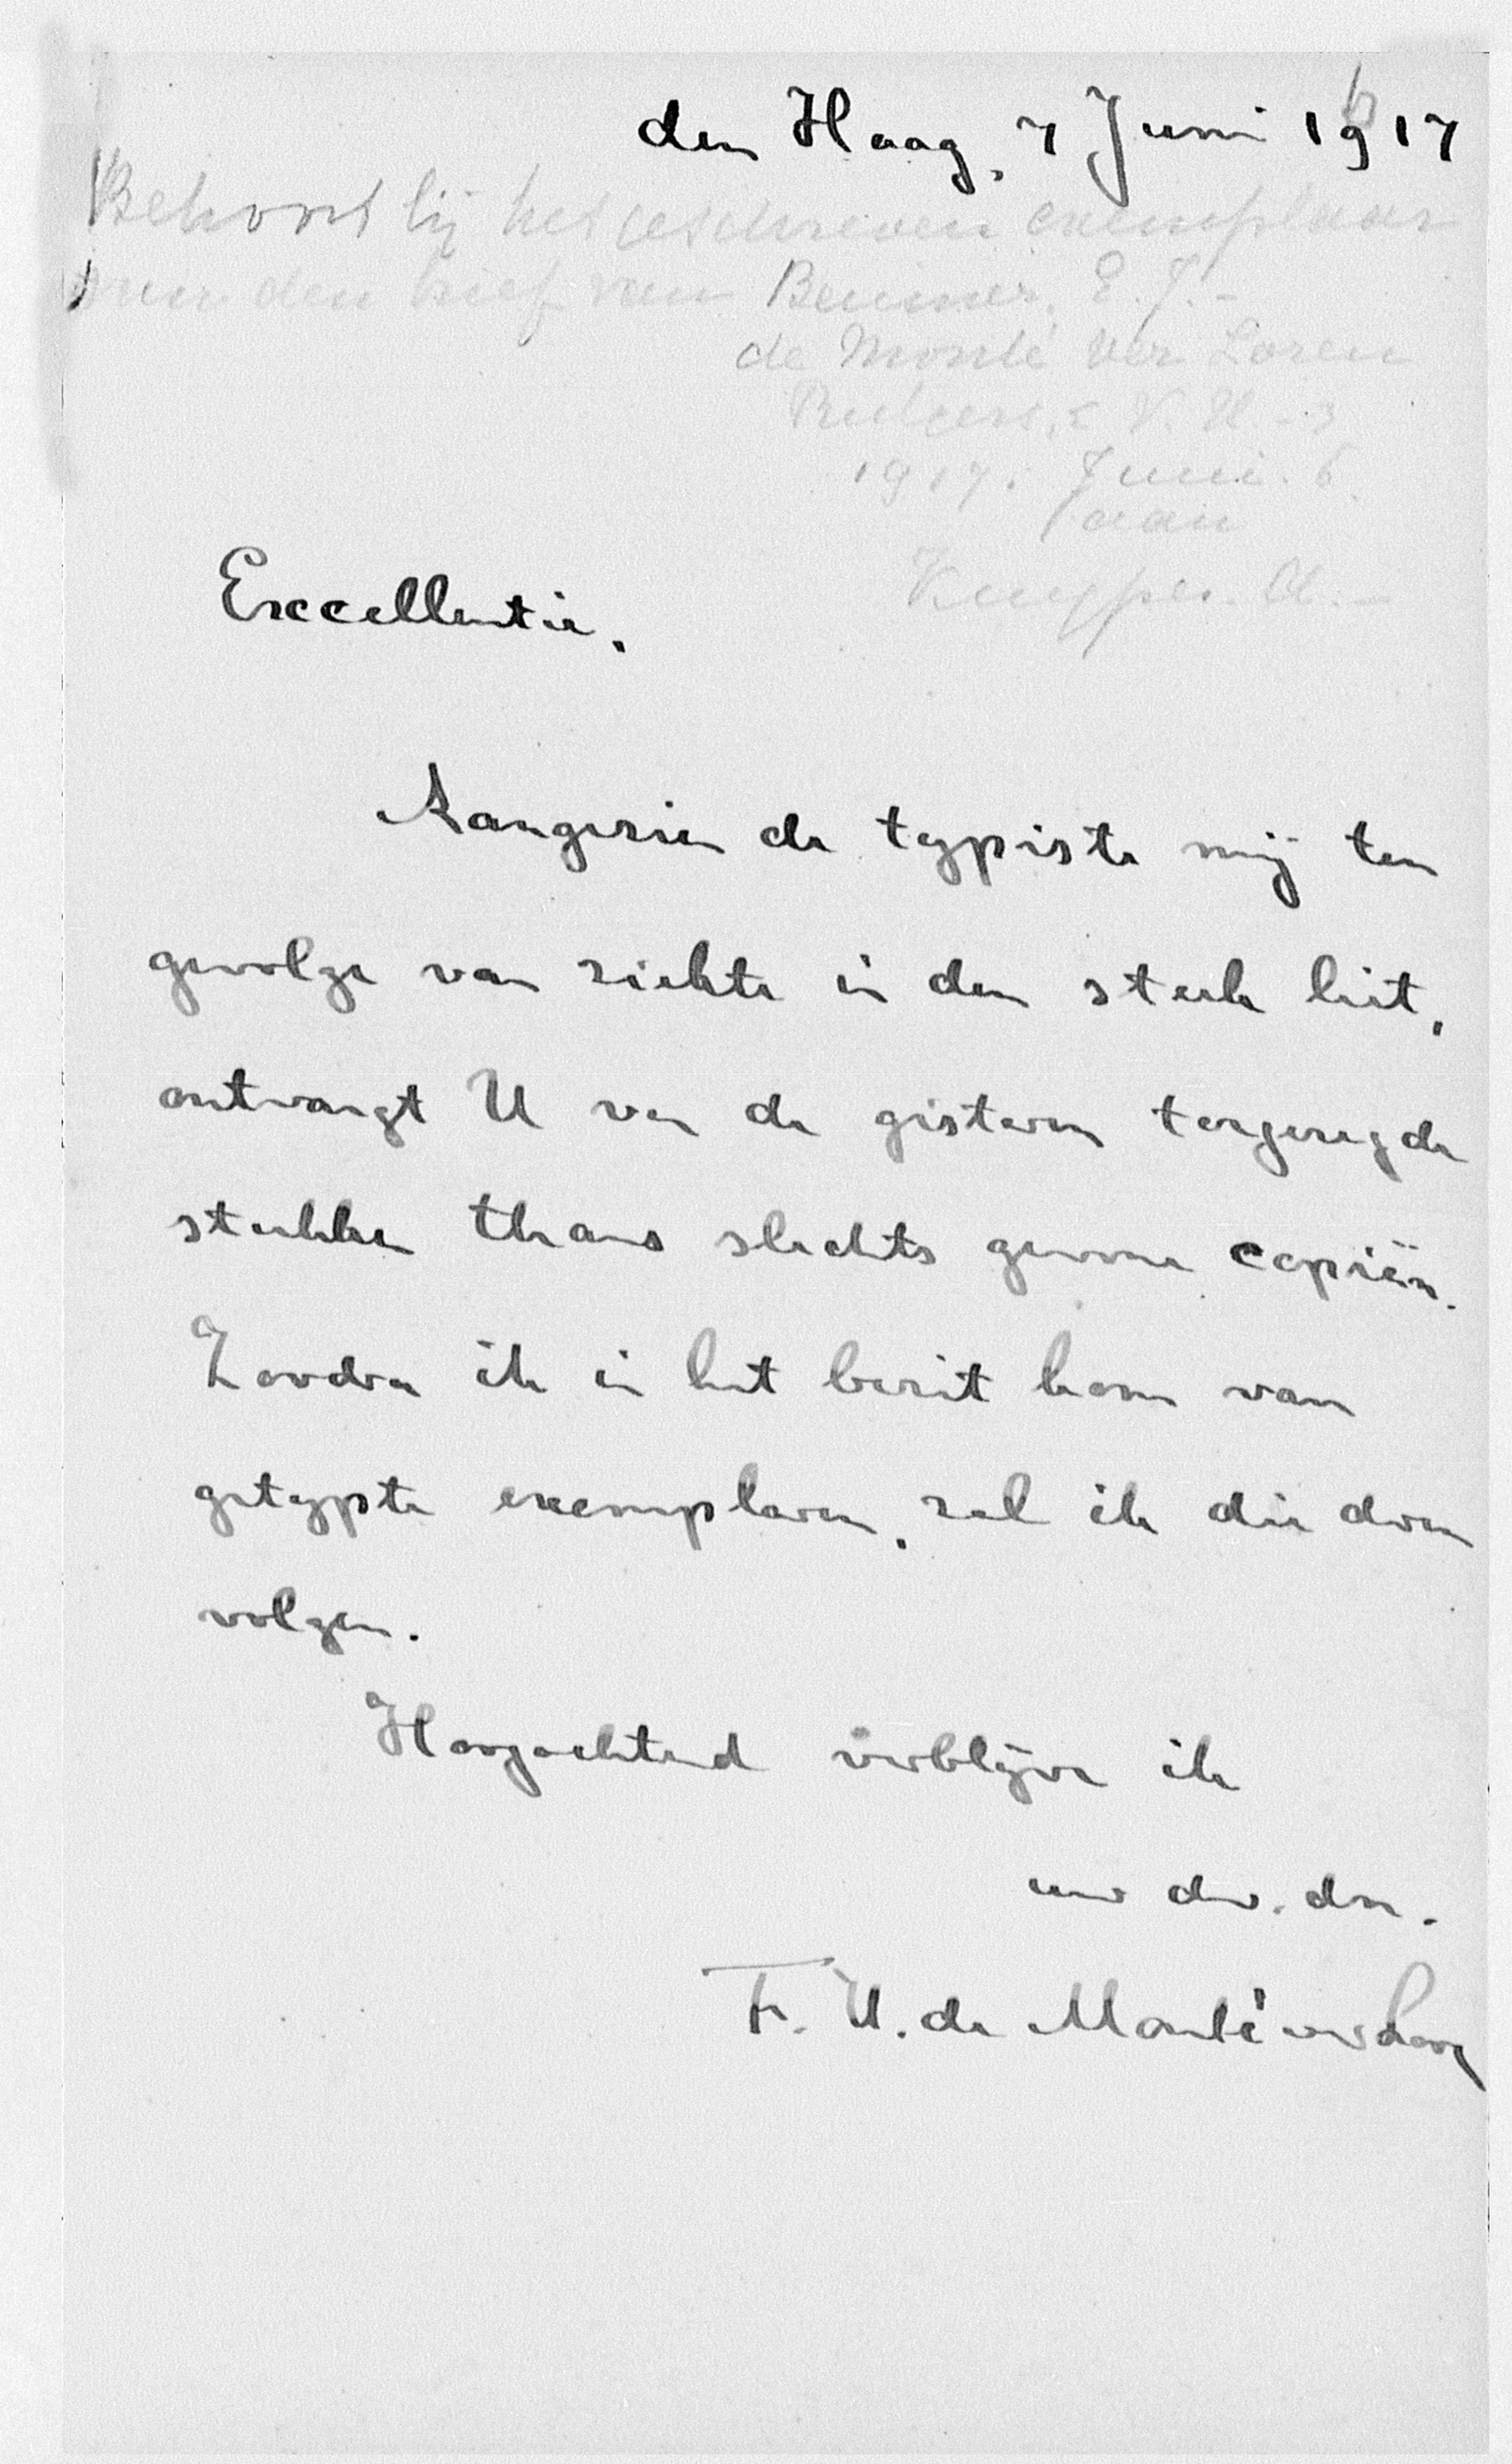 den Haag, 7 Juni 1917
6
Behoort bij het geschreven exemplaar
van den brief van Beumer, E.J.-
de Monté Ver Loren
Rutgers, V.H.-3
1917. Juni. 6.
aan
Kuyper. A.-
Excellentie,
Aangezien de typiste mij ten
gevolge van ziekte in den steek liet,
ontvangt U van de gisteren toegezegde
stukken thans slechts gewone copiën.
Zoodra ik in het bezit kom van
getypte exemplaren, zal ik die doen
volgen.
Hoogachtend verblijve ik
uw dw. dn.
F. U. de Monté ver Loren